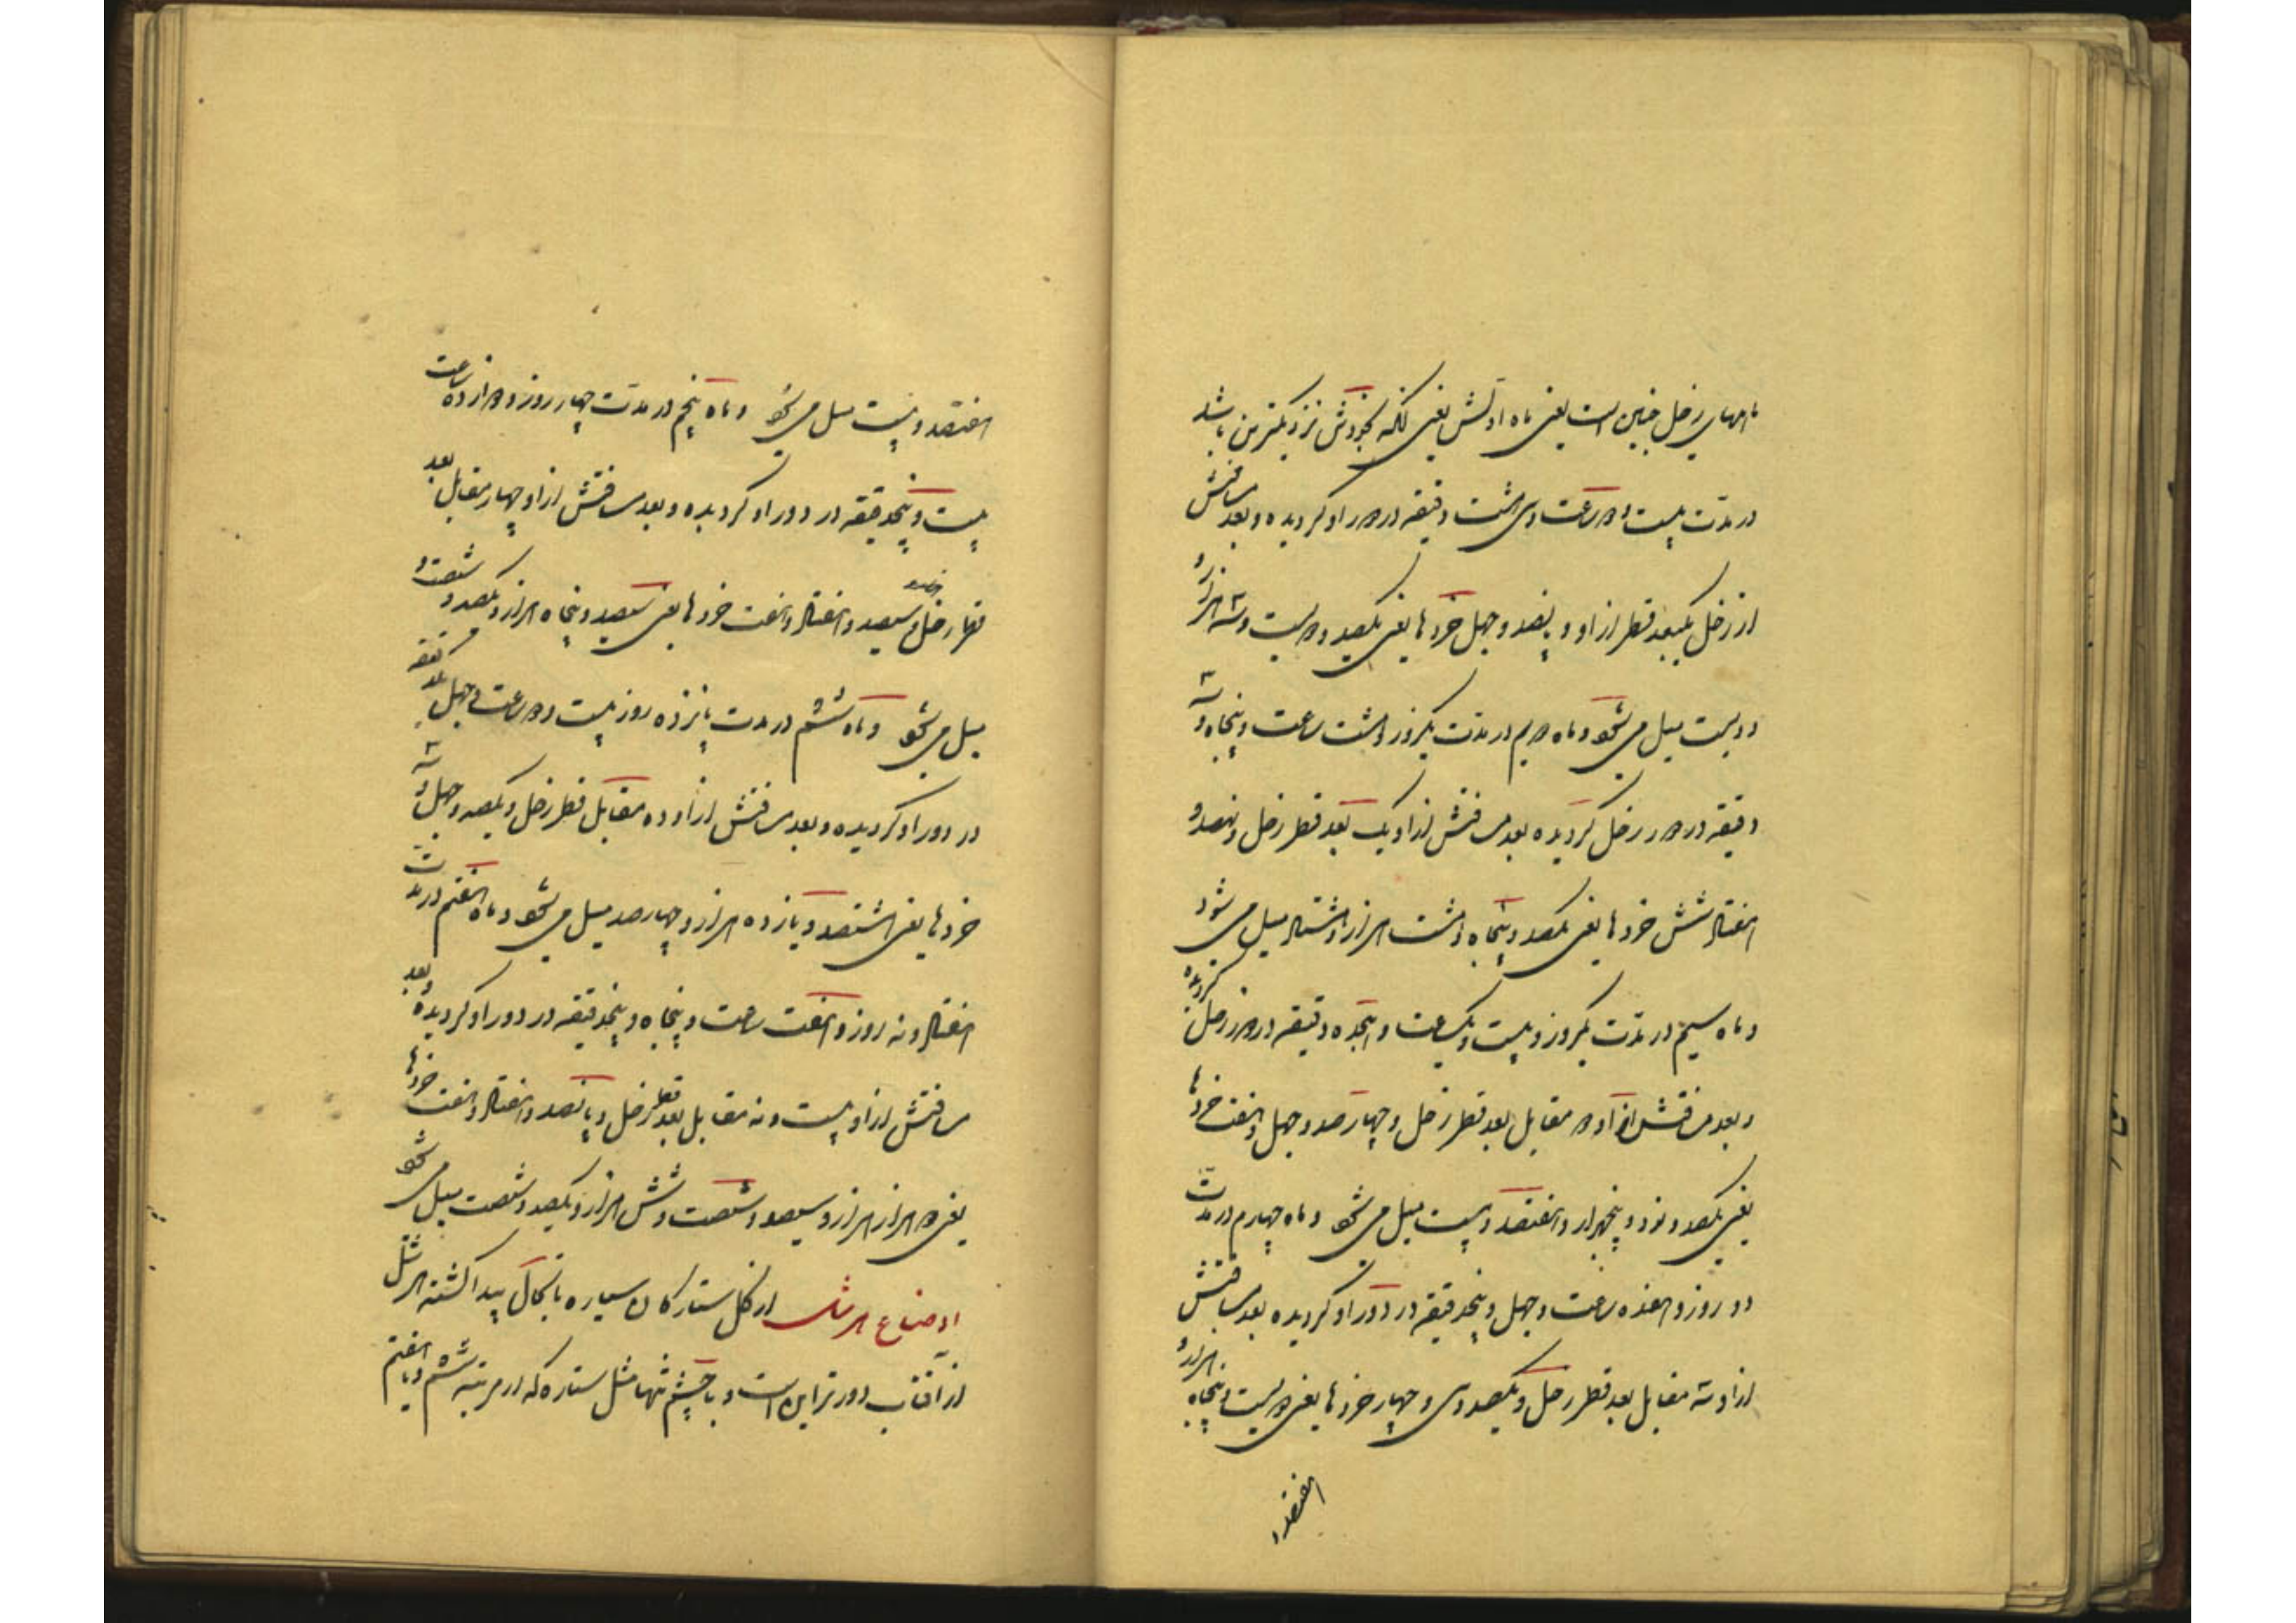 ماههای زحل چنین است یعنی ماه اولش یعنی آنکه بخودش نزدیکترین باشد
در مدت بیست و دو ساعت و سی و هشت دقیقه در دور او گردیده و بعد مسافتش
از زحل یکبعد قطر از او و پانصد و چهل خردها یعنی یکصد و بیست و سه هزار و
دویست میل می‌شود و ماه دویم در مدت یکروز و هشت ساعت و پنجاه و سه
دقیقه در دور زحل گردیده بعد مسافتش از او یک بعد قطر زحل و نهصد و
هفتاد و شش خردها یعنی یکصد و پنجاه و هشت هزار و هشتاد میل می‌شود
و ماه سیم در مدت یکروز و بیست و یکساعت و هجده دقیقه در دور زحل گردیده
و بعد مسافتش از او دو مقابل بعد قطر زحل و چهارصد و چهل و هفت خردها
یعنی یکصد و نود و پنجهزار و هفتصد و بیست میل می‌شود و ماه چهارم در مدت
دو روز و هفده ساعت و چهل و پنجدقیقه در دور او گردیده بعد مسافتش
از او سه مقابل بعد قطر زحل و یکصد و سی و چهار خردها یعنی دویست و پنجاه هزار و
هفتصد و
هفتصد و بیست میل می‌شود و ماه پنجم در مدت چهار روز و دوازده ساعت
بیست و پنجدقیقه در دور او گردیده و بعد مسافتش از او چهار مقابل بعد
قطر زحل و سیصد و هفتاد و هفت خردها یعنی سیصد و پنجاه هزار و یکصد و شصت و
میل می‌شود و ماه ششم در مدت پانزده روز بیست و دو ساعت و چهل یکدقیقه
در دور او گردیده و بعد مسافتش از او ده مقابل قطر زحل و یکصد و چهل و سه
خردها یعنی هشتصد و یازده هزار و چهارصد میل می‌شود و ماه هفتم در مدت
هفتاد و نه روز و هفت ساعت و پنجاه و پنجدقیقه در دور او گردیده و بعد
مسافتش از او بیست و نه مقابل بعد قطر زحل و پانصد و هفتاد و هفت خردها
یعنی دو هزار هزار و سیصد و شصت و شش هزار و یکصد و شصت میل می‌شود
اوضاع هرشل از کل ستارگان سیاره تا بحال پیدا گشته هرشل
از آفتاب دورتر این است و با چشم تنها مثل ستاره که از مرتبه ششم و یا هفتم